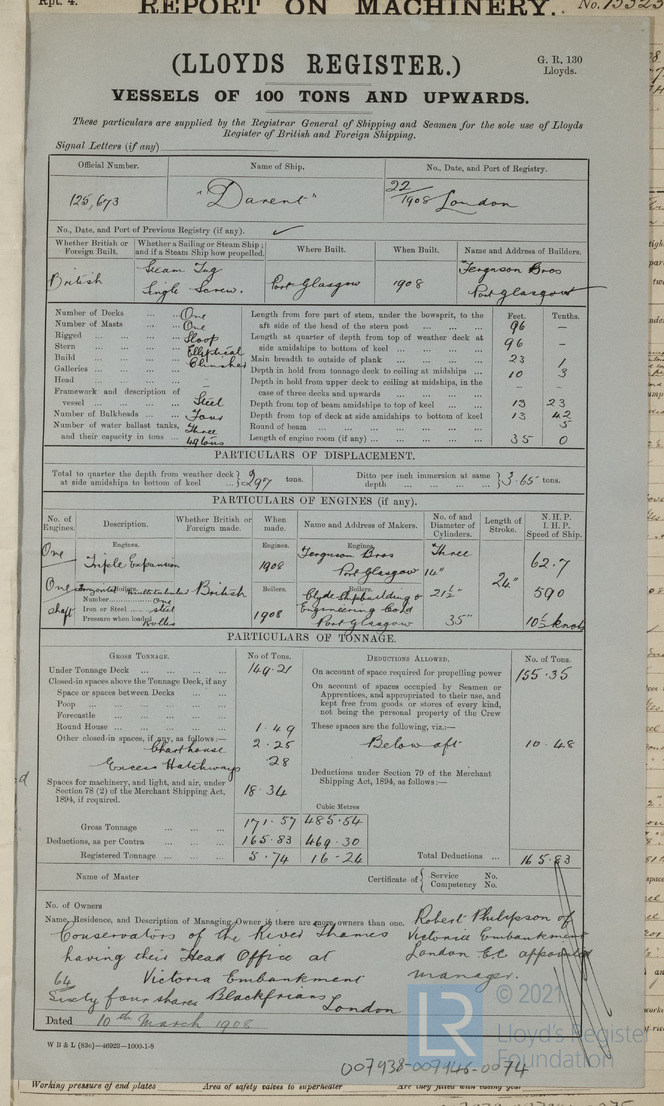 Rpt. 4.
REPORT ON MACHINERY.
No. 13323
(LLOYDS REGISTER.)
G. R. 130
Lloyds.
VESSELS OF 100 TONS AND UPWARDS.
These particulars are supplied by the Registrar General of Shipping and Seamen for the sole use of Lloyds
Register of British and Foreign Shipping.
Signal Letters (if any)
Official Number. Name of Ship. No., Date, and Port of Registry.
125,673 "Darent" 22/1908 London
No., Date, and Port of Previous Registry (if any).
Whether British or Foreign Built. Whether a Sailing or Steam Ship; and if a Steam Ship how propelled. Where Built. When Built. Name and Address of Builders.
British Steam Tug Single Screw. Port Glasgow 1908 Ferguson Bros Port Glasgow
Number of Decks ... One
Number of Masts ... One
Rigged ... Sloop
Stern ... Elliptical
Build ... Clincher
Galleries ... –
Head ... –
Framework and description of
vessel ... Steel
Number of Bulkheads ... Four
Number of water ballast tanks, Three
and their capacity in tons ... 49 tons
Feet. Tenths.
Length from fore part of stem, under the bowsprit, to the
aft side of the head of the stern post ... 96 –
Length at quarter of depth from top of weather deck at
side amidships to bottom of keel ... 96 –
Main breadth to outside of plank ... 23 1
Depth in hold from tonnage deck to ceiling at midships ... 10 3
Depth in hold from upper deck to ceiling at midships, in the
case of three decks and upwards ... – –
Depth from top of beam amidships to top of keel ... 13 23
Depth from top of deck at side amidships to bottom of keel 13 42
Round of beam ... 5
Length of engine room (if any) ... 35 0
PARTICULARS OF DISPLACEMENT.
Total to quarter the depth from weather deck
at side amidships to bottom of keel ... 297 tons.
Ditto per inch immersion at same
depth ... 3.65 tons.
PARTICULARS OF ENGINES (if any).
No. of Engines. Description. Whether British or Foreign made. When made. Name and Address of Makers. No. of and Diameter of Cylinders. Length of Stroke. N. H. P. I. H. P. Speed of Ship.
Engines. Engines. Engines.
One Triple Expansion 1908 Ferguson Bros Port Glasgow Three 14" 62.7
Boilers. Boilers. Boilers.
One shaft Horizontal Multitubular British 21½" 24" 590
Number One
Iron or Steel steel
Pressure when loaded
1908 Clyde Shipbuilding & Engineering Co Ld Port Glasgow 35" 10½ knots
PARTICULARS OF TONNAGE.
GROSS TONNAGE. No of Tons. DEDUCTIONS ALLOWED. No. of Tons.
Under Tonnage Deck ... 149.21
Closed-in spaces above the Tonnage Deck, if any
Space or spaces between Decks ...
Poop ...
Forecastle ...
Round House ... 1.49
Other closed-in spaces, if any, as follows:—
Chart house 2.25
Excess Hatchways .28
Spaces for machinery, and light, and air, under
Section 78 (2) of the Merchant Shipping Act,
1894, if required. 18.34
On account of space required for propelling power 155.35
On account of spaces occupied by Seamen or
Apprentices, and appropriated to their use, and
kept free from goods or stores of every kind,
not being the personal property of the Crew
These spaces are the following, viz.:—
Below aft 10.48
Deductions under Section 79 of the Merchant
Shipping Act, 1894, as follows:—
Cubic Metres
Gross Tonnage ... 171.57 485.54
Deductions, as per Contra ... 165.83 469.30
Registered Tonnage ... 5.74 16.24
Total Deductions ... 165.83
Name of Master
Certificate of { Service No.
Competency No.
No. of Owners
Name, Residence, and Description of Managing Owner if there are more owners than one.
Conservators of the River Thames
having their Head Office at
Victoria Embankment
Blackfriars London
64
Sixty four shares
Robert Philipson of
Victoria Embankment
London EC appointed
manager.
Dated 10th March 1908
W B & L (83o)—46923—1000-1-8
LR © 2021
Lloyd's Register
Foundation
007938-007946-0074
Working pressure of end plates Area of safety valves to superheater